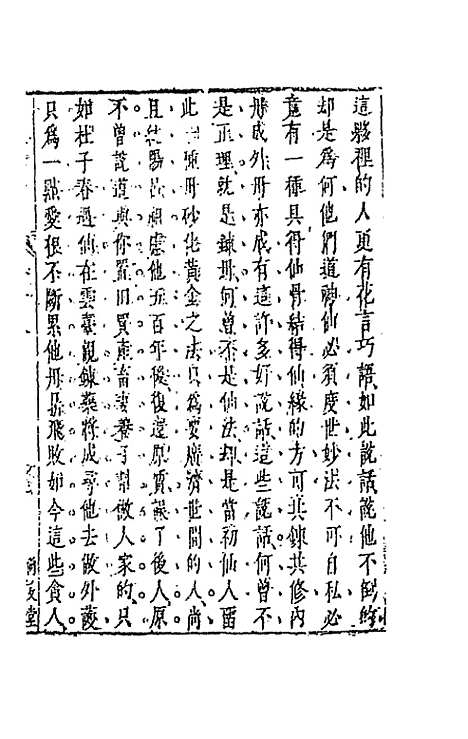 這夥裡的人更有花言巧語如此說話說他不倒的
却是爲何他們道神仙必須度世妙法不可自私必
竟有一種具得仙骨結得仙緣的方可共鍊共修內
丹成外丹亦成有這許多好說話這些說話何曾不
是正理就是鍊丹何曾不是仙法却是當初仙人留
此丹砂化黃金之法只爲要廣濟世間的人尚
且純陽呂祖慮他五百年後復還原質誤了後人原
不曾說道與你置田買產畜妻養子幫做人家的只
如杜子春遇仙在雲臺觀鍊藥將成尋他去做外護
只爲一點愛根不斷累他丹鼎飛敗如今這些貪人
尚友堂